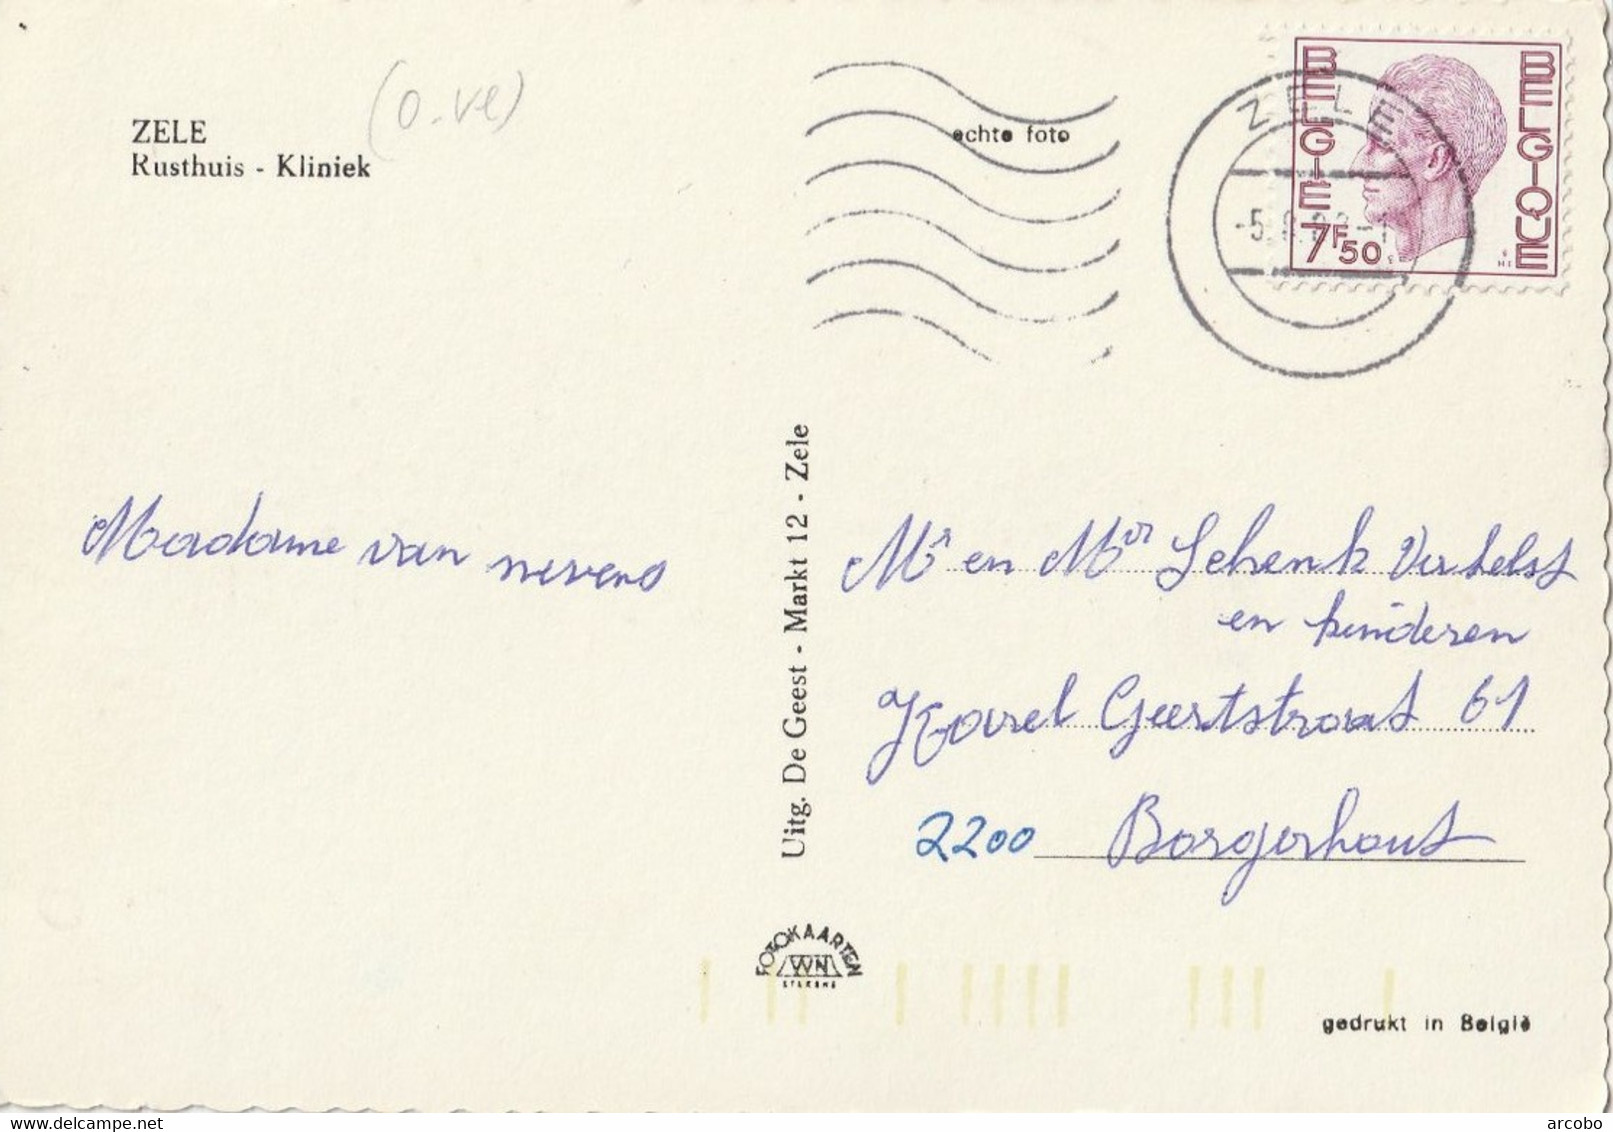 ZELE
Rusthuis - Kliniek
(O-Vl)
echte foto
ZELE
BELGIE
BELGIQUE
7F50
Uitg. De Geest - Markt 12 - Zele
Madame van nevens
Mr en Mvr Schenk Verhelst
en kinderen
Karel Geertstraat 61
2200 Borgerhout
FOTOKAARTEN
gedrukt in België
www.delcampe.net
arcobo